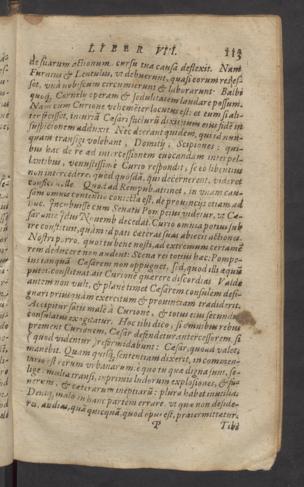 LIBER VII. 113
de suarum actionum cursu tua causa deflexit. Nam
Furnius & Lentulus, vt debuerunt, quasi eorum res es-
set, vnà nobiscum circumierunt & laborarunt. Balbi
quoq́; Cornelij operam & sedulitatem laudare possum.
Nam cum Curione vehementer locutus est: et eum si ali-
ter fecisset, iniuriā Cæsari facturū dixit: tum eius fidē in
suspitionem adduxit. Nec deerant quidem, qui id nun-
quam transigi volebant, Domitij, Scipiones: qui-
bus hac de re ad intercessionem euocandam interpel-
lantibus, venustissimè Curio respondit, se eo libentius
non intercedere, quod quosdā, qui decernerent, videret
confici nolle. Quod ad Rempub. attinet, in vnam cau-
sam omnis contentio coniecta est, de prouincijs: etiam ad-
huc incubuisse cum Senatu Pompeius videtur, vt Cæ-
sar Idus Nouemb. decedat. Curio omnia potius sub-
ire constituit, quàm id pati: ceteras suas abiecit actiones.
Nostri porro, quos tu bene nosti, ad extremum certamē
rem deducere non audent: Scena rei totius hæc: Pompe-
ius tanquā Cæsarem non oppugnet, sed, quod illi æquū
putet, constituat: ait Curionē quærere discordias. Valde
autem non vult, & planè timet Cæsarem consulem desi-
gnari, prius quam exercitum & prouinciam tradiderit.
Accipitur satis malè à Curione, & totus eius secundus
consulatus exagitatur. Hoc tibi dico, si omnibus rebus
prement Curionem, Cæsar defendetur, intercessorem, si
(quod videntur) reformidabunt: Cæsar, quoad volet,
manebit. Quam quisq́; sententiam dixerit, in commen-
tario est rerum vrbanarum: ex quo tu quæ digna sunt, se-
lige: multa transi, inprimis ludorum explosiones, & fu-
nerum, & cæterarum ineptiarū: plura habet inutilia.
Deniq́; malo in hanc partem errare, vt quæ non deside-
res, audias, quā quicquā, quod opus est, prætermittatur.
P Tibi